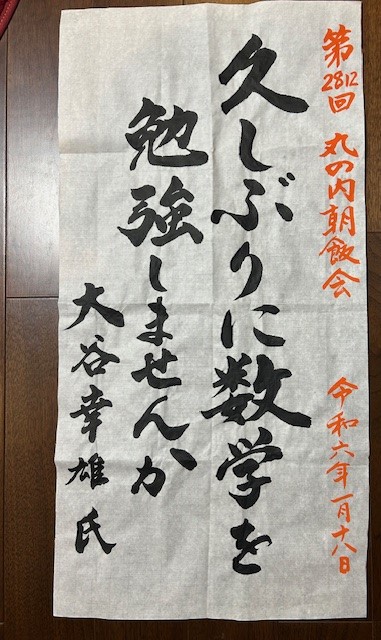 第2812回 丸の内朝飯会 令和六年一月十八日
久しぶりに数学を
勉強しませんか
大谷幸雄氏